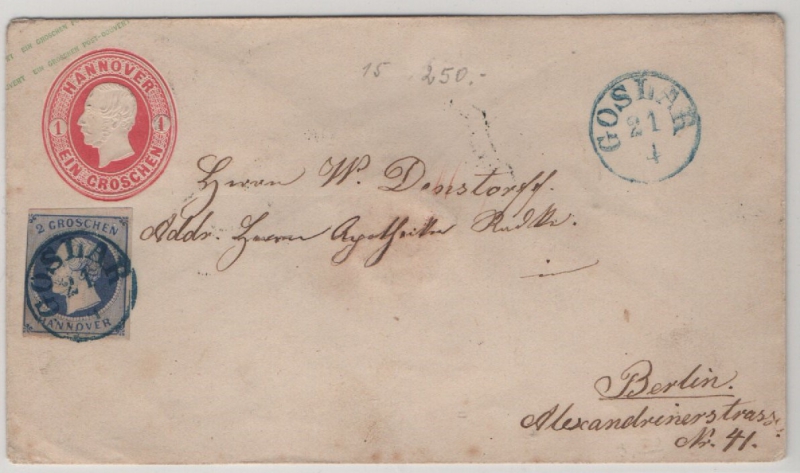 EIN GROSCHEN POST-COUVERT EIN GROSCHEN POST-COUVERT
HANNOVER
1 1
EIN GROSCHEN
15 250.-
GOSLAR
21
4
Herrn W. Denstorff.
Addr. Herrn Apotheker Radke.
in
2 GROSCHEN
GOSLAR
21
4
HANNOVER
Berlin.
Alexandrinerstrasse
Nr. 41.